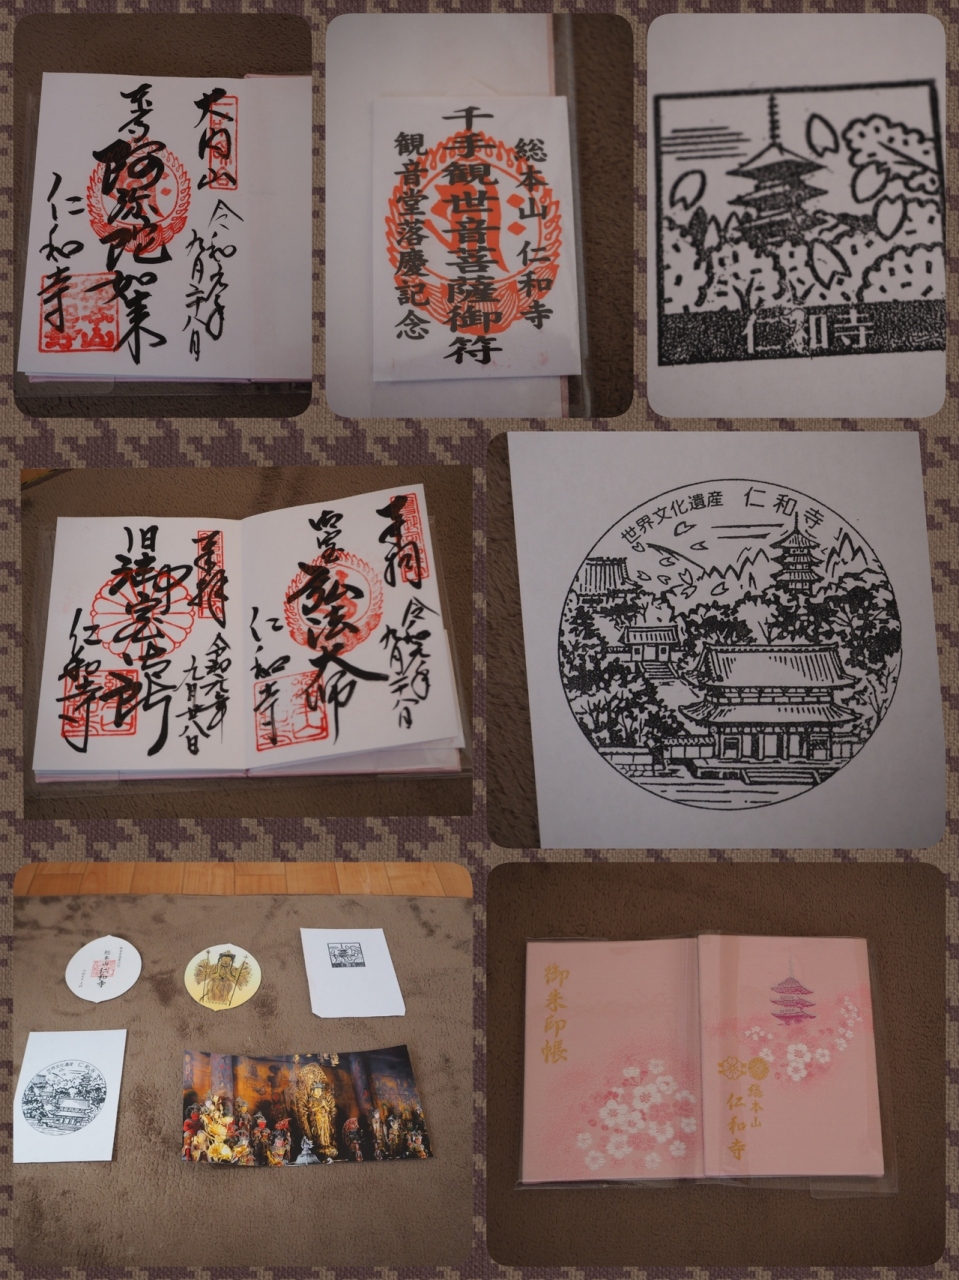 大内山
令和元年
九月二十八日
阿弥陀如来
仁和寺
総本山 仁和寺
千手観世音菩薩御符
観音堂落慶記念
仁和寺
奉拝
令和元年
九月二十八日
弘法大師
仁和寺
奉拝
令和元年
九月廿八日
旧御室御所
仁和寺
世界文化遺産 仁和寺
総本山
仁和寺
仁和寺
世界文化遺産 仁和寺
御朱印帳
総本山
仁和寺